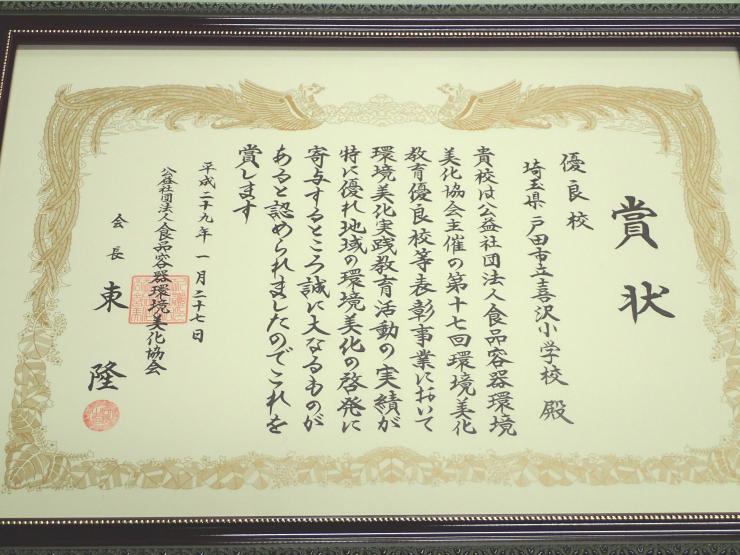 賞状
優良校
埼玉県戸田市立喜沢小学校 殿
貴校は公益社団法人食品容器環境
美化協会主催の第十七回環境美化
教育優良校等表彰事業において
環境美化実践教育活動の実績が
特に優れ地域の環境美化の啓発に
寄与するところ誠に大なるものが
あると認められましたのでこれを
賞します
平成二十九年一月二十七日
公益社団法人食品容器環境美化協会
会長 東 隆